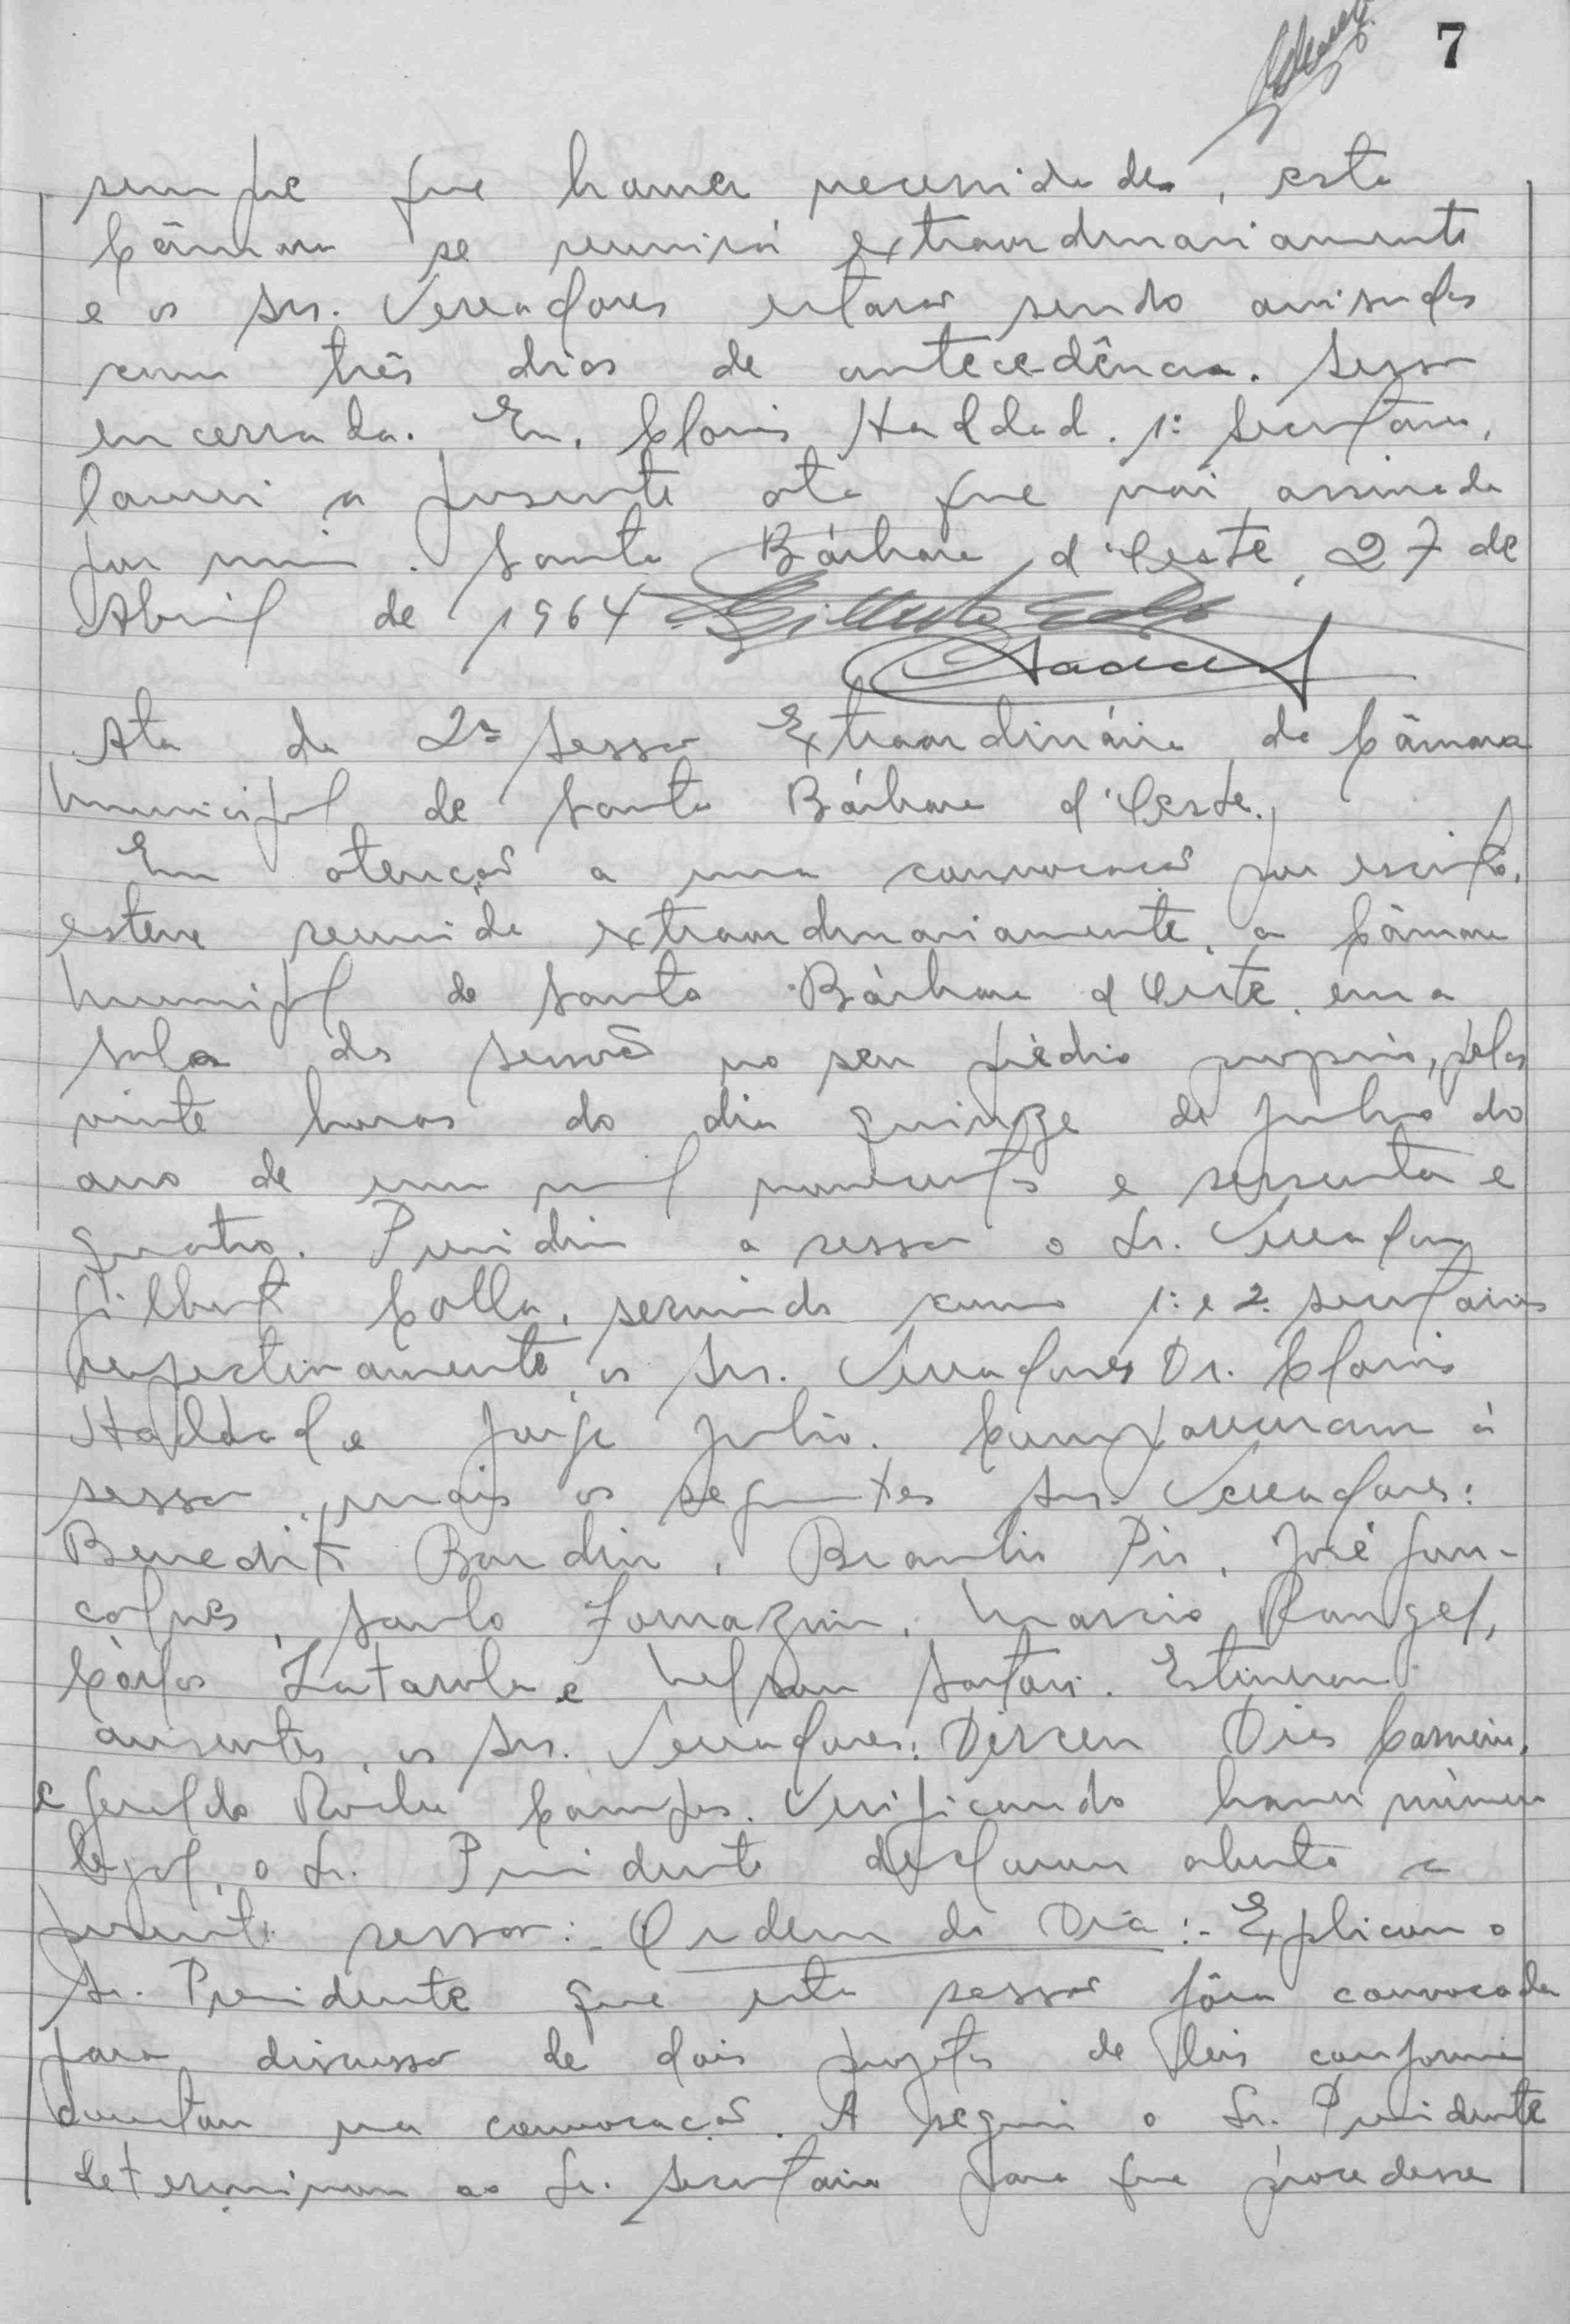 7
sempre que houver necessidade, esta
Câmara se reunirá extraordinariamente
e os Srs. Vereadores estarão sendo avisados
com três dias de antecedência. Sessão
encerrada. Eu, Clovis Haddad. 1º Secretario,
lavrei a presente ata que vai assinada
por mim. Santa Bárbara d'Oeste, 27 de
Abril de 1964
Ata da 2ª Sessão Extraordinária da Câmara
Municipal de Santa Bárbara d'Oeste.
Em atenção a uma convocação por escrito,
esteve reunida extraordinariamente, a Câmara
Municipal de Santa Bárbara d'Oeste, em a
sala de sessões no seu prédio proprio, pelas
vinte horas do dia quinze de Julho do
ano de um mil novecentos e sessenta e
quatro. Presidiu a sessão o Sr. Vereador
Gilberto Colla, servindo como 1º e 2º secretarios
respectivamente, os Srs. Vereadores Dr. Clovis
Haddad e Jorge Julio. Compareceram à
sessão, mais os seguintes Srs. Vereadores:
Benedito Bordin, Braulio Pio, José Gon-
çalves, Saulo Fornazim, Marcio Rangel,
Cárlos Zatarola e Nelson Sartori. Estiveram
ausentes, os Srs. Vereadores: Dirceu Dias Carneiro,
e Geraldo Rocha Campos. Verificando haver número
legal, o Sr. Presidente declarou aberta a
presente sessão:- Ordem do Dia:- Explicou o
Sr. Presidente que esta sessão fôra convocada
para discussão de dois projetos de leis conforme
constou na convocação. A seguir o Sr. Presidente
determinou ao Sr. Secretario para que procedesse